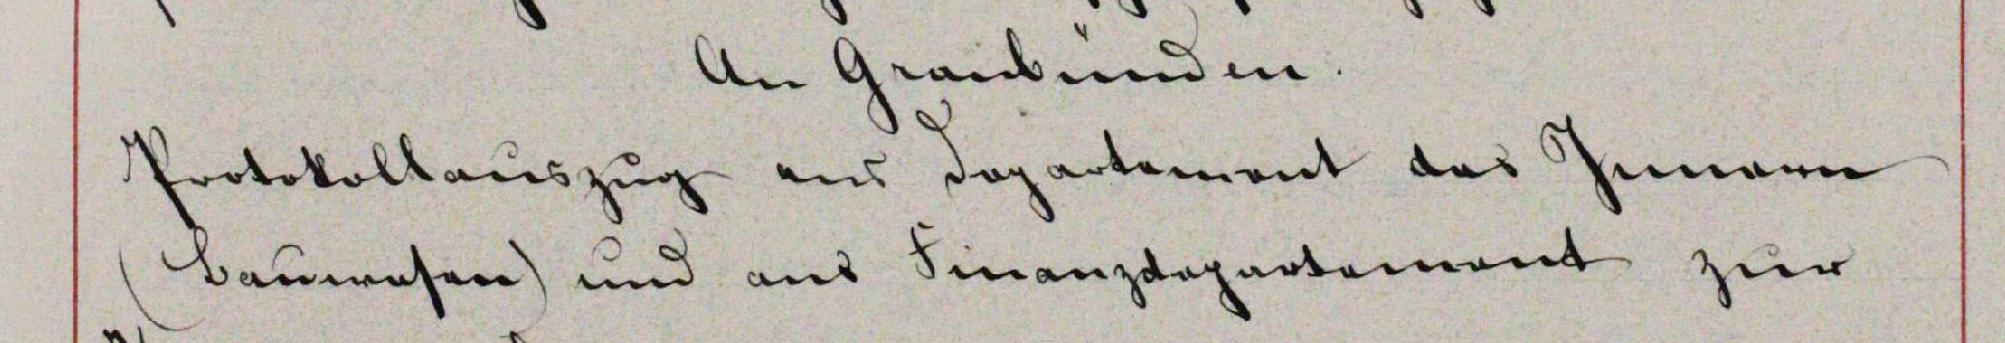 An Graubünden.
Protokollauszug ans Departement des Innern
(Bauwesen) und ans Finanzdepartement zur